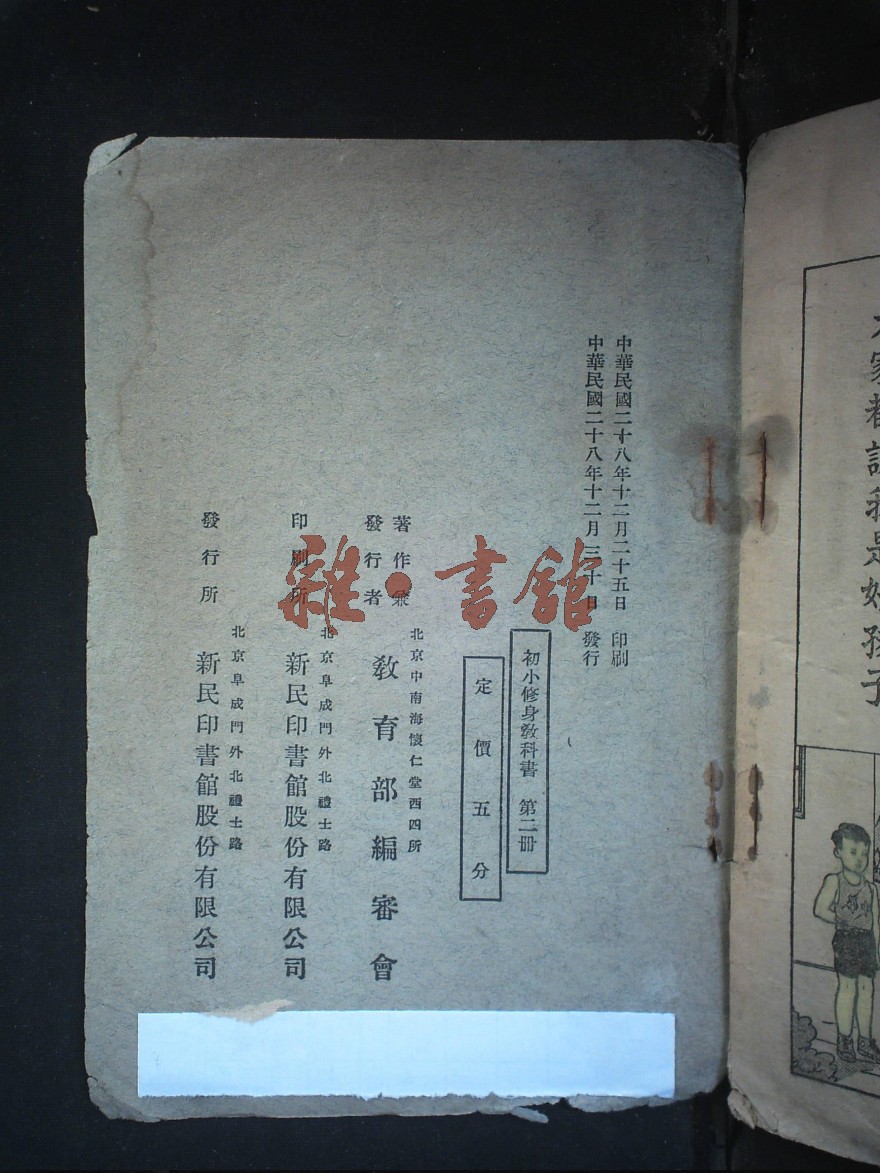 中華民國二十八年十二月二十五日 印刷
中華民國二十八年十二月三十日 發行
初小修身教科書 第二冊
定價五分
著作兼
發行者
北京中南海懷仁堂西四所
教育部編審會
印刷所
北京阜成門外北禮士路
新民印書館股份有限公司
發行所
北京阜成門外北禮士路
新民印書館股份有限公司
雜·書館
家都說我是好孩子